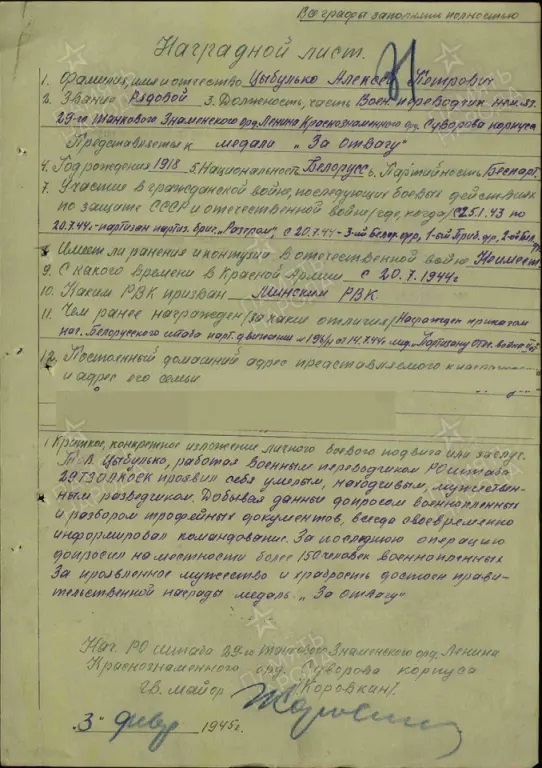 Все графы заполнять полностью
Наградной лист.
1. Фамилия, имя и отчество Цыбулько Алексей Петрович
2. Звание Рядовой 3. Должность, часть Воен. переводчик
29-го Танкового Знаменского орд. Ленина Краснознаменного орд. Суворова корпуса
Представляется к медали „За отвагу"
4. Год рождения 1918 5. Национальность Белорусс 6. Партийность Беспарт.
7. Участие в гражданской войне, последующих боевых действиях
по защите СССР и отечественной войне /где, когда/ с 25.1.43 по
20.7.44г.-партизан партиз. бриг. „Разгром", с 20.7.44 - 3-ий Белор. фр, 1-ый Приб. фр, 2-ой Бел.
8. Имеет ли ранение и контузии в отечественной войне Не имеет
9. С какого времени в Красной Армии с 20.7.1944г
10. Каким РВК призван Минским РВК
11. Чем ранее награжден /за какие отличия/ Награжден приказом
нач. Белорусского штаба парт. движения № 196/ от 14.7.44г мед. „Партизану Отеч. войны
12. Постоянный домашний адрес представляемого к награждению
и адрес его семьи
1. Краткое, конкретное изложение личного боевого подвига или заслуг.
Цыбулько, работая военным переводчиком РО штаба
29 проявил себя умелым, находчивым, мужествен-
ным разведчиком. Добывая данные допросом военнопленных
и разбором трофейных документов, всегда своевременно
информировал командование. За последнюю операцию
допросил на местности более 150 человек военнопленных
За проявленное мужество и храбрость достоен прави-
тельственной награды медаль „За отвагу"
Нач. РО штаба 29-го танкового Знаменского орд. Ленина
Краснознаменного орд. Суворова корпуса
гв. майор /Коровкин/
„3" февр 1945г.